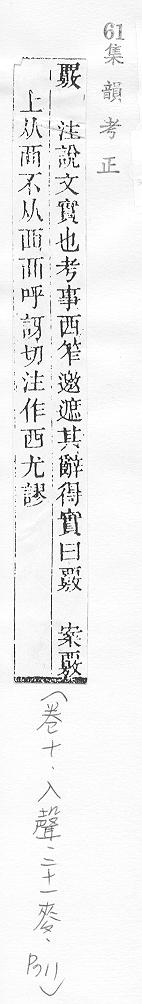 61集韻考正
覈 注說文實也考事襾笮邀遮其辭得實曰覈 案覈
上从襾不从西襾呼訝切注作西尤謬
(卷十、入聲、二十一麥、P311)